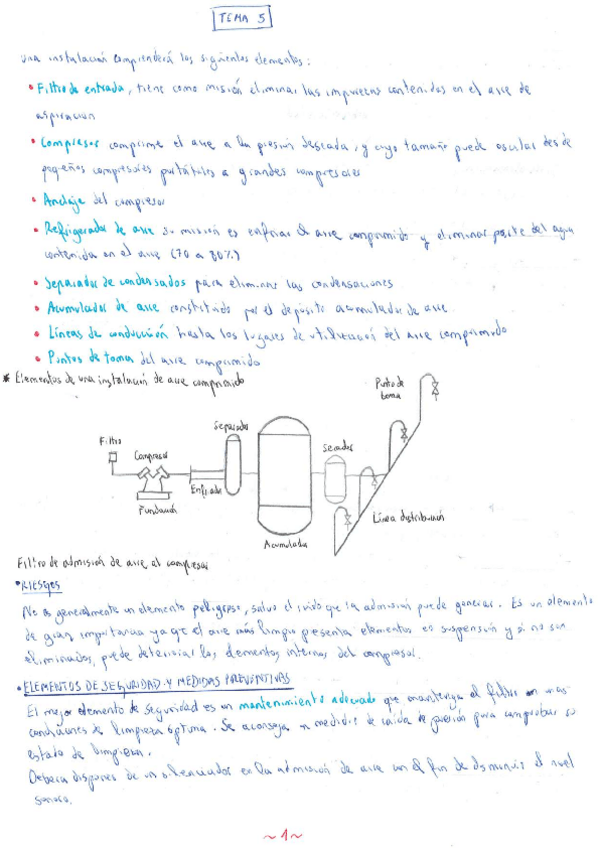 TEMA 5
una instalación comprenderá los siguientes elementos:
• Filtro de entrada, tiene como misión eliminar las impurezas contenidas en el aire de
aspiración
• Compresor comprime el aire a la presión deseada, y cuyo tamaño puede oscilar desde
pequeños compresores portátiles a grandes compresores
• Anclaje del compresor
• Refrigerador de aire su misión es enfriar el aire comprimido y eliminar parte del agua
contenida en el aire (70 a 80%)
• Separador de condensados para eliminar las condensaciones
• Acumulador de aire constituido por el depósito acumulador de aire
• Líneas de conducción hasta los lugares de utilización del aire comprimido
• Puntos de toma del aire comprimido
* Elementos de una instalación de aire comprimido
Punto de
toma
Separador
Filtro
Compresor
Secador
Enfriador
Fundación
Línea distribución
Acumulador
Filtro de admisión de aire al compresor
• RIESGOS
No es generalmente un elemento peligroso, salvo el ruido que la admisión puede generar. Es un elemento
de gran importancia ya que el aire más limpio presenta elementos en suspensión y si no son
eliminados, puede deteriorar los elementos internos del compresor.
• ELEMENTOS DE SEGURIDAD Y MEDIDAS PREVENTIVAS
El mejor elemento de seguridad es un mantenimiento adecuado que mantenga al filtro en unas
condiciones de limpieza óptima. Se aconseja un medidor de caída de presión para comprobar su
estado de limpieza.
Deberá disponer de un silenciador en la admisión de aire con el fin de disminuir el nivel
sonoro.
~1~